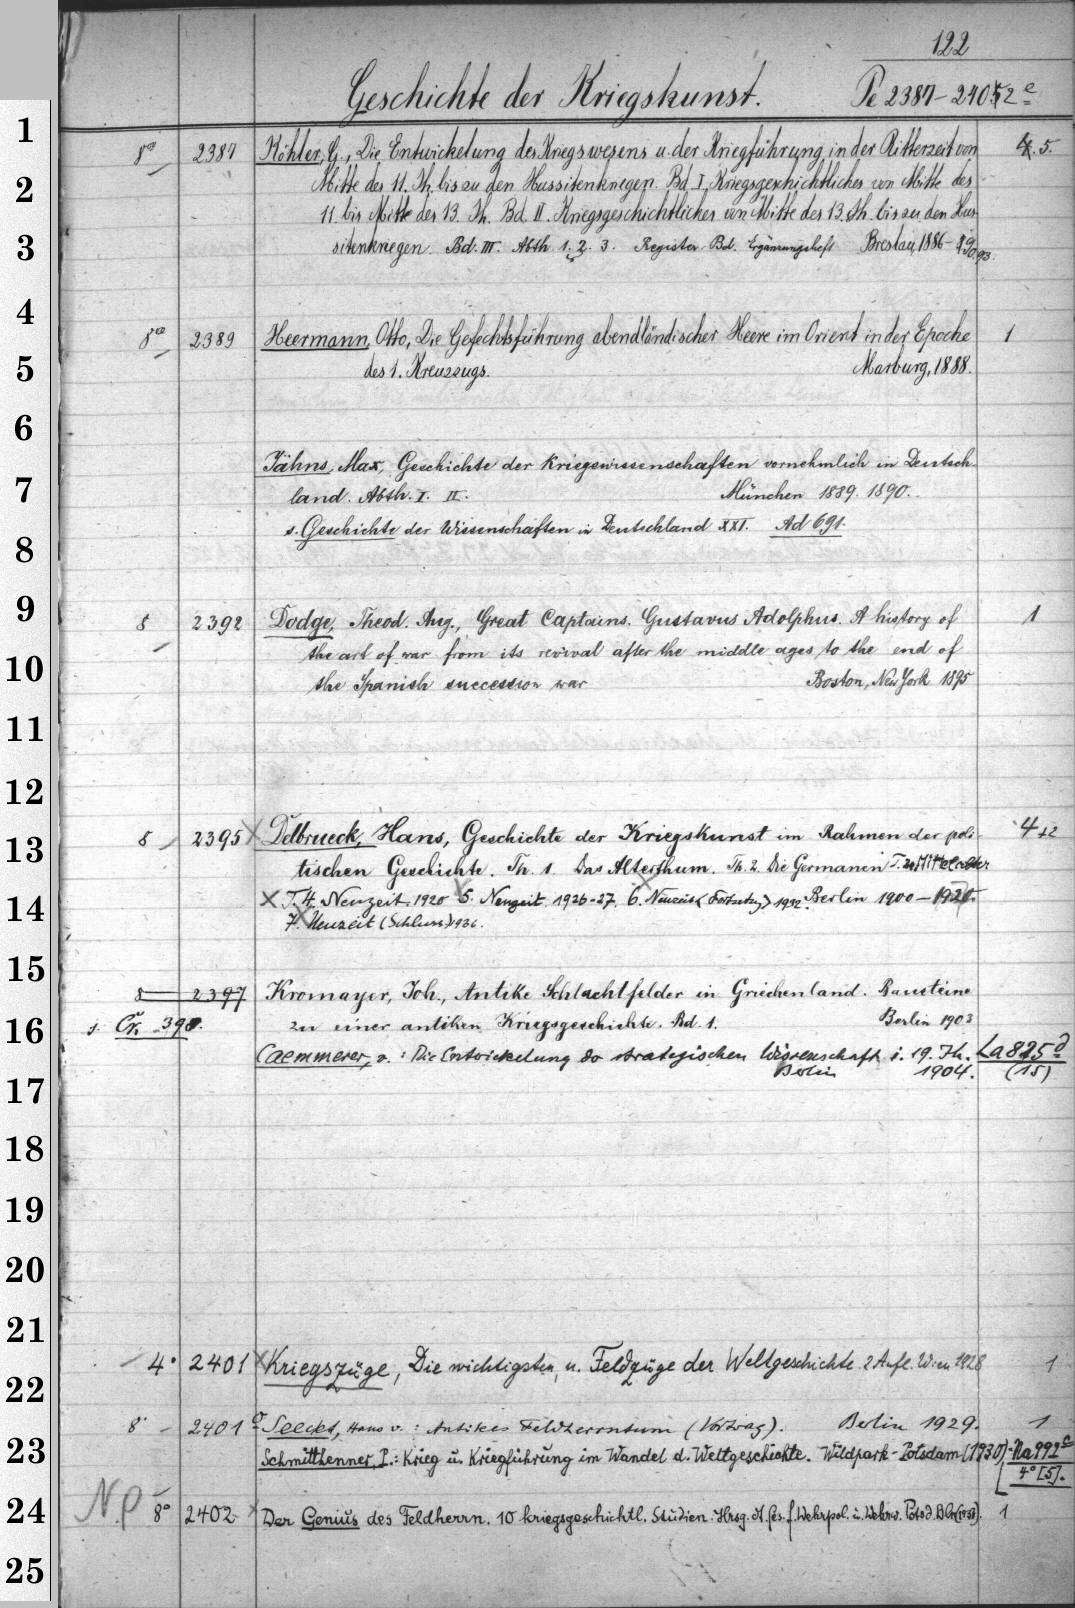 122
Geschichte der Kriegskunst. Pe 2387-2402e
1
8° 2387 Köhler, G., Die Entwickelung des Kriegswesens u. der Kriegführung in der Ritterzeit von 5.
Mitte des 11. Jh. bis zu den Hussitenkriegen. Bd I, Kriegsgeschichtliches von Mitte des
2
11. bis Mitte des 13. Jh. Bd. II. Kriegsgeschichtliches von Mitte des 13. Jh. bis zu den Hus-
3
sitenkriegen. Bd. III. Abth. 1. 2. 3. Register-Bd. Ergänzungsheft Breslau, 1886-90.93.
4
8° 2389 Heermann, Otto, Die Gefechtsführung abendländischer Heere im Orient in der Epoche 1
5
des 1. Kreuzzugs. Marburg, 1888.
6
Jähns, Max, Geschichte der Kriegswissenschaften vornehmlich in Deutsch-
7
land. Abth. I. II. München 1889. 1890.
s. Geschichte der Wissenschaften in Deutschland XXI. Ad 691.
8
9
8 2392 Dodge, Theod. Aug., Great Captains. Gustavus Adolphus. A history of 1
the art of war from its revival after the middle ages to the end of
10
the Spanish succession war Boston, New York 1895
11
12
8 2395 Delbrueck, Hans, Geschichte der Kriegskunst im Rahmen der poli- 4+2
13
tischen Geschichte. Th. 1. Das Alterthum. Th. 2. Die Germanen T. 3 Mittelalter
14
T. 4. Neuzeit. 1920 5. Neuzeit. 1926-27. 6. Neuzeit (Fortsetzg) 1932. Berlin 1900-1920.
7. Neuzeit (Schluss) 1936.
15
8 2397 Kromayer, Joh., Antike Schlachtfelder in Griechenland. Bausteine
16
s. Cr. 390. zu einer antiken Kriegsgeschichte. Bd. 1. Berlin 1903
Caemmerer, v.: Die Entwickelung d. strategischen Wissenschaft i. 19. Jh. La 825d
Berlin 1904. (15)
17
18
19
20
21
4° 2401 Kriegszüge, Die wichtigsten, u. Feldzüge der Weltgeschichte. 2. Aufl. Wien 1928 1
22
8° 2401a Seeckt, Hans v.: Antikes Feldherrntum (Vortrag). Berlin 1929. 1
23
Schmitthenner, P.: Krieg u. Kriegführung im Wandel d. Weltgeschichte. Wildpark-Potsdam (1930). Na 992c
4° [5].
24
N.P 8° 2402 Der Genius des Feldherrn. 10 kriegsgeschichtl. Studien. Hrsg. d. Ges. f. Wehrpol. u. Wehrw. Potsd. Bln 1
25